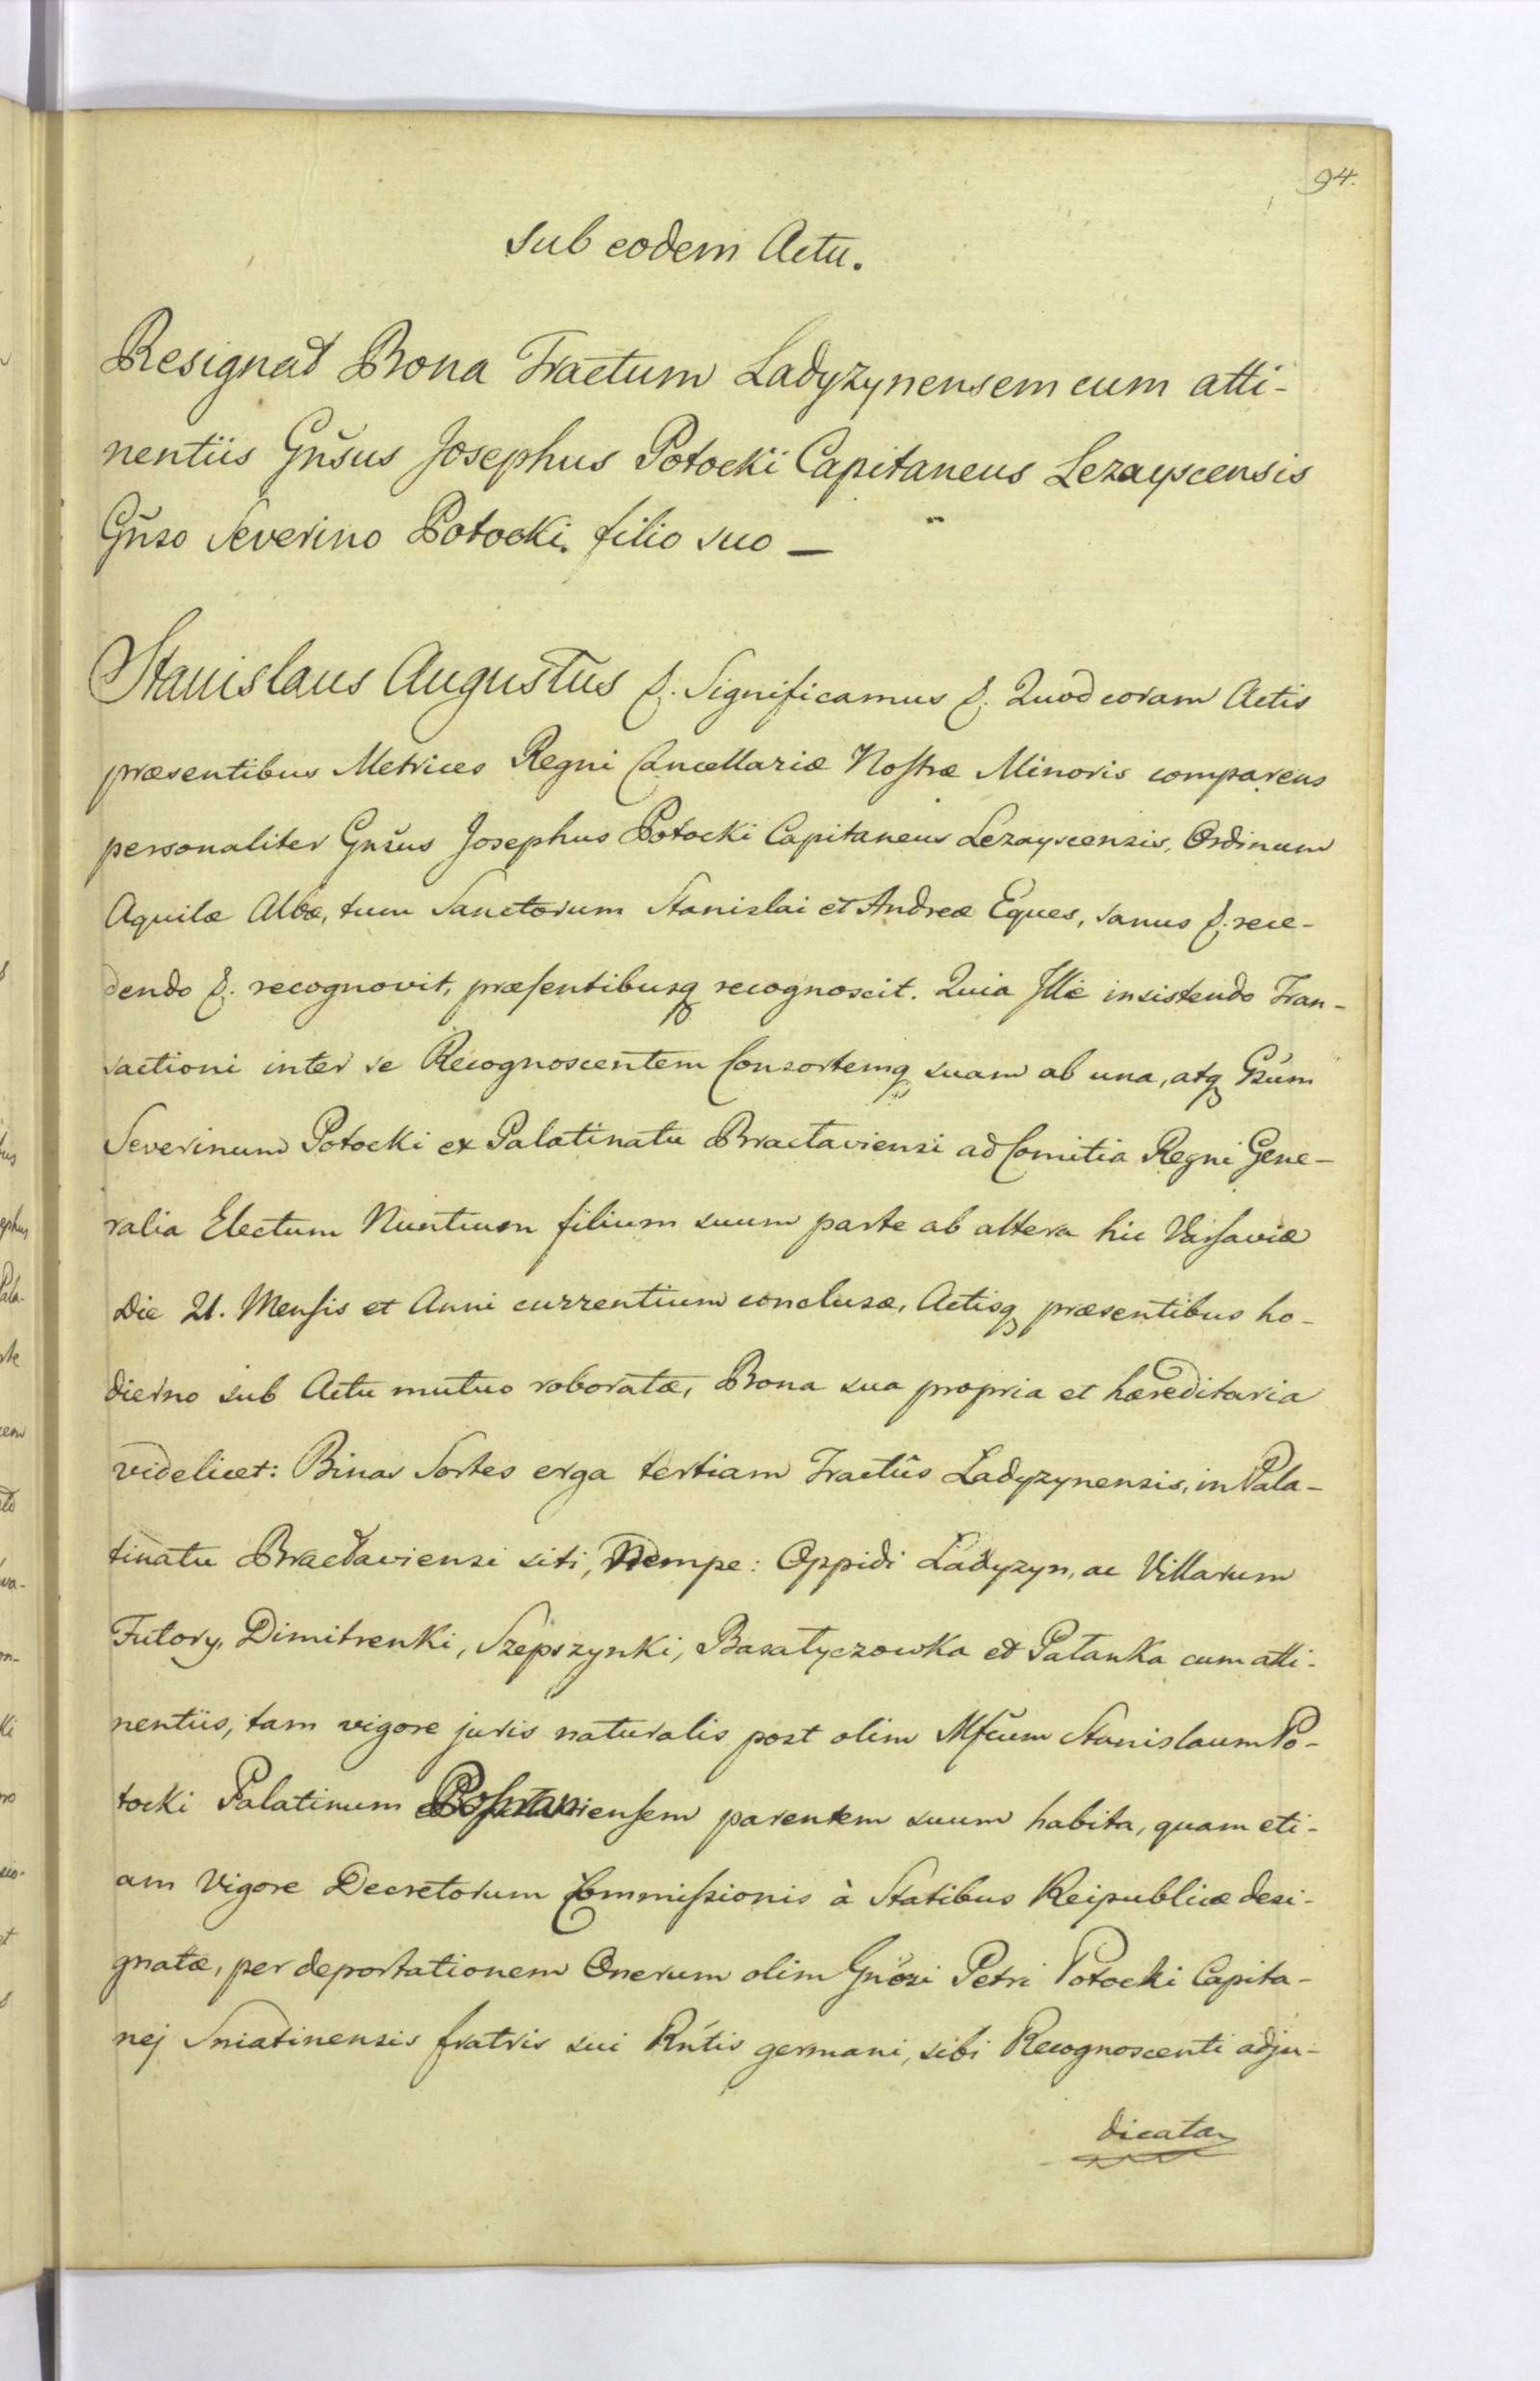 94.
Sub eodem Actu.
Resignat Bona Tractum Ladyzynensem cum atti-
nentiis Gnsus Josephus Potocki Capitaneus Lezayscensis
Gnso Severino Potocki filio suo —
Stanislaus Augustus &. Significamus &. Quod coram Actis
præsentibus Metrices Regni Cancellariæ Nostræ Minoris comparens
personaliter Gnsus Josephus Potocki Capitaneus Lezayscensis, Ordinum
Aquilæ Albæ, tum Sanctorum Stanislai et Andreæ Eques, sanus &. rece-
dendo &. recognovit, præsentibusq recognoscit. Quia Ille insistendo Tran-
sactioni inter se Recognoscentem Consortemq suam ab una, atq Gsum
Severinum Potocki ex Palatinatu Bractaviensi ad Comitia Regni Gene-
ralia Electum Nuntium filium suum parte ab altera hic Varsaviæ
Die 21. Mensis et Anni currentium conclusæ, Actisq præsentibus ho-
dierno sub Actu mutuo roboratæ, Bona sua propria et hæreditaria
videlicet: Binas Sortes erga tertiam Tractûs Ladyzynensis, in Pala-
tinatu Bractaviensi siti, Nempe: Oppidi Ladyzyn, ac Villarum
Futory, Dimitrenki, Szepszynki, Basałyczowka et Pałanka cum atti-
nentiis, tam vigore juris naturalis post olim Mfcum Stanislaum Po-
tocki Palatinum Posnaniensem parentem suum habita, quam eti-
am Vigore Decretorum Commissionis à Statibus Reipublicæ desi-
gnatæ, per deportationem Onerum olim Gnosi Petri Potocki Capita-
nej Sniatinensis fratris sui Rntis germani, sibi Recognoscenti adju-
dicata